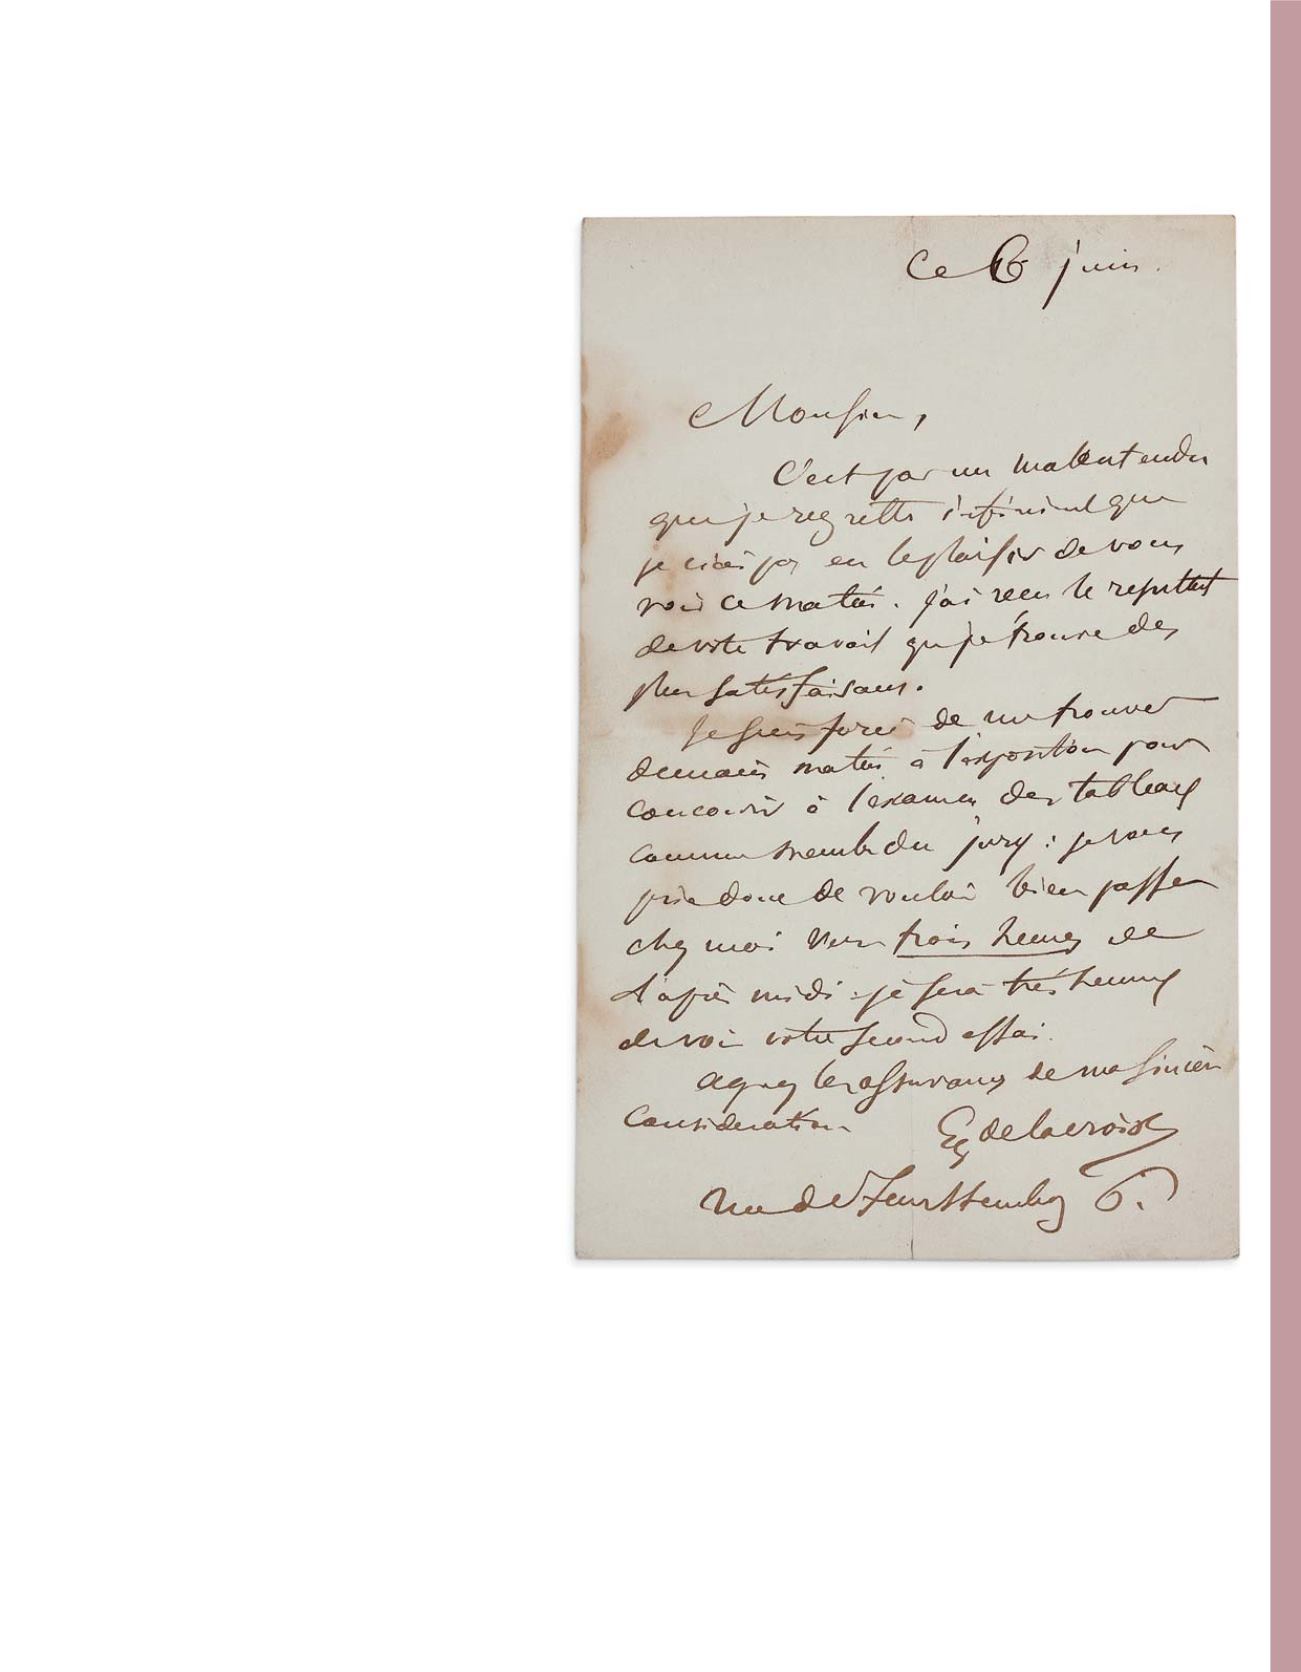 Ce 6 juin.
Monsieur,
C'est par un malentendu
que je regrette infiniment que
je n'ai pas eu le plaisir de vous
voir ce matin. J'ai reçu le resultat
de votre travail que je trouve des
plus satisfaisans.
Je suis forcé de me trouver
demain matin à l'exposition pour
concourir à l'examen des tableaux
comme membre du jury : je vous
prie donc de vouloir bien passer
chez moi vers trois heures de
l'après midi : je serai très heureux
de voir votre second essai.
Agréez les assurances de ma sincère
Considération
Eg Delacroix
rue de Furstemberg 6.